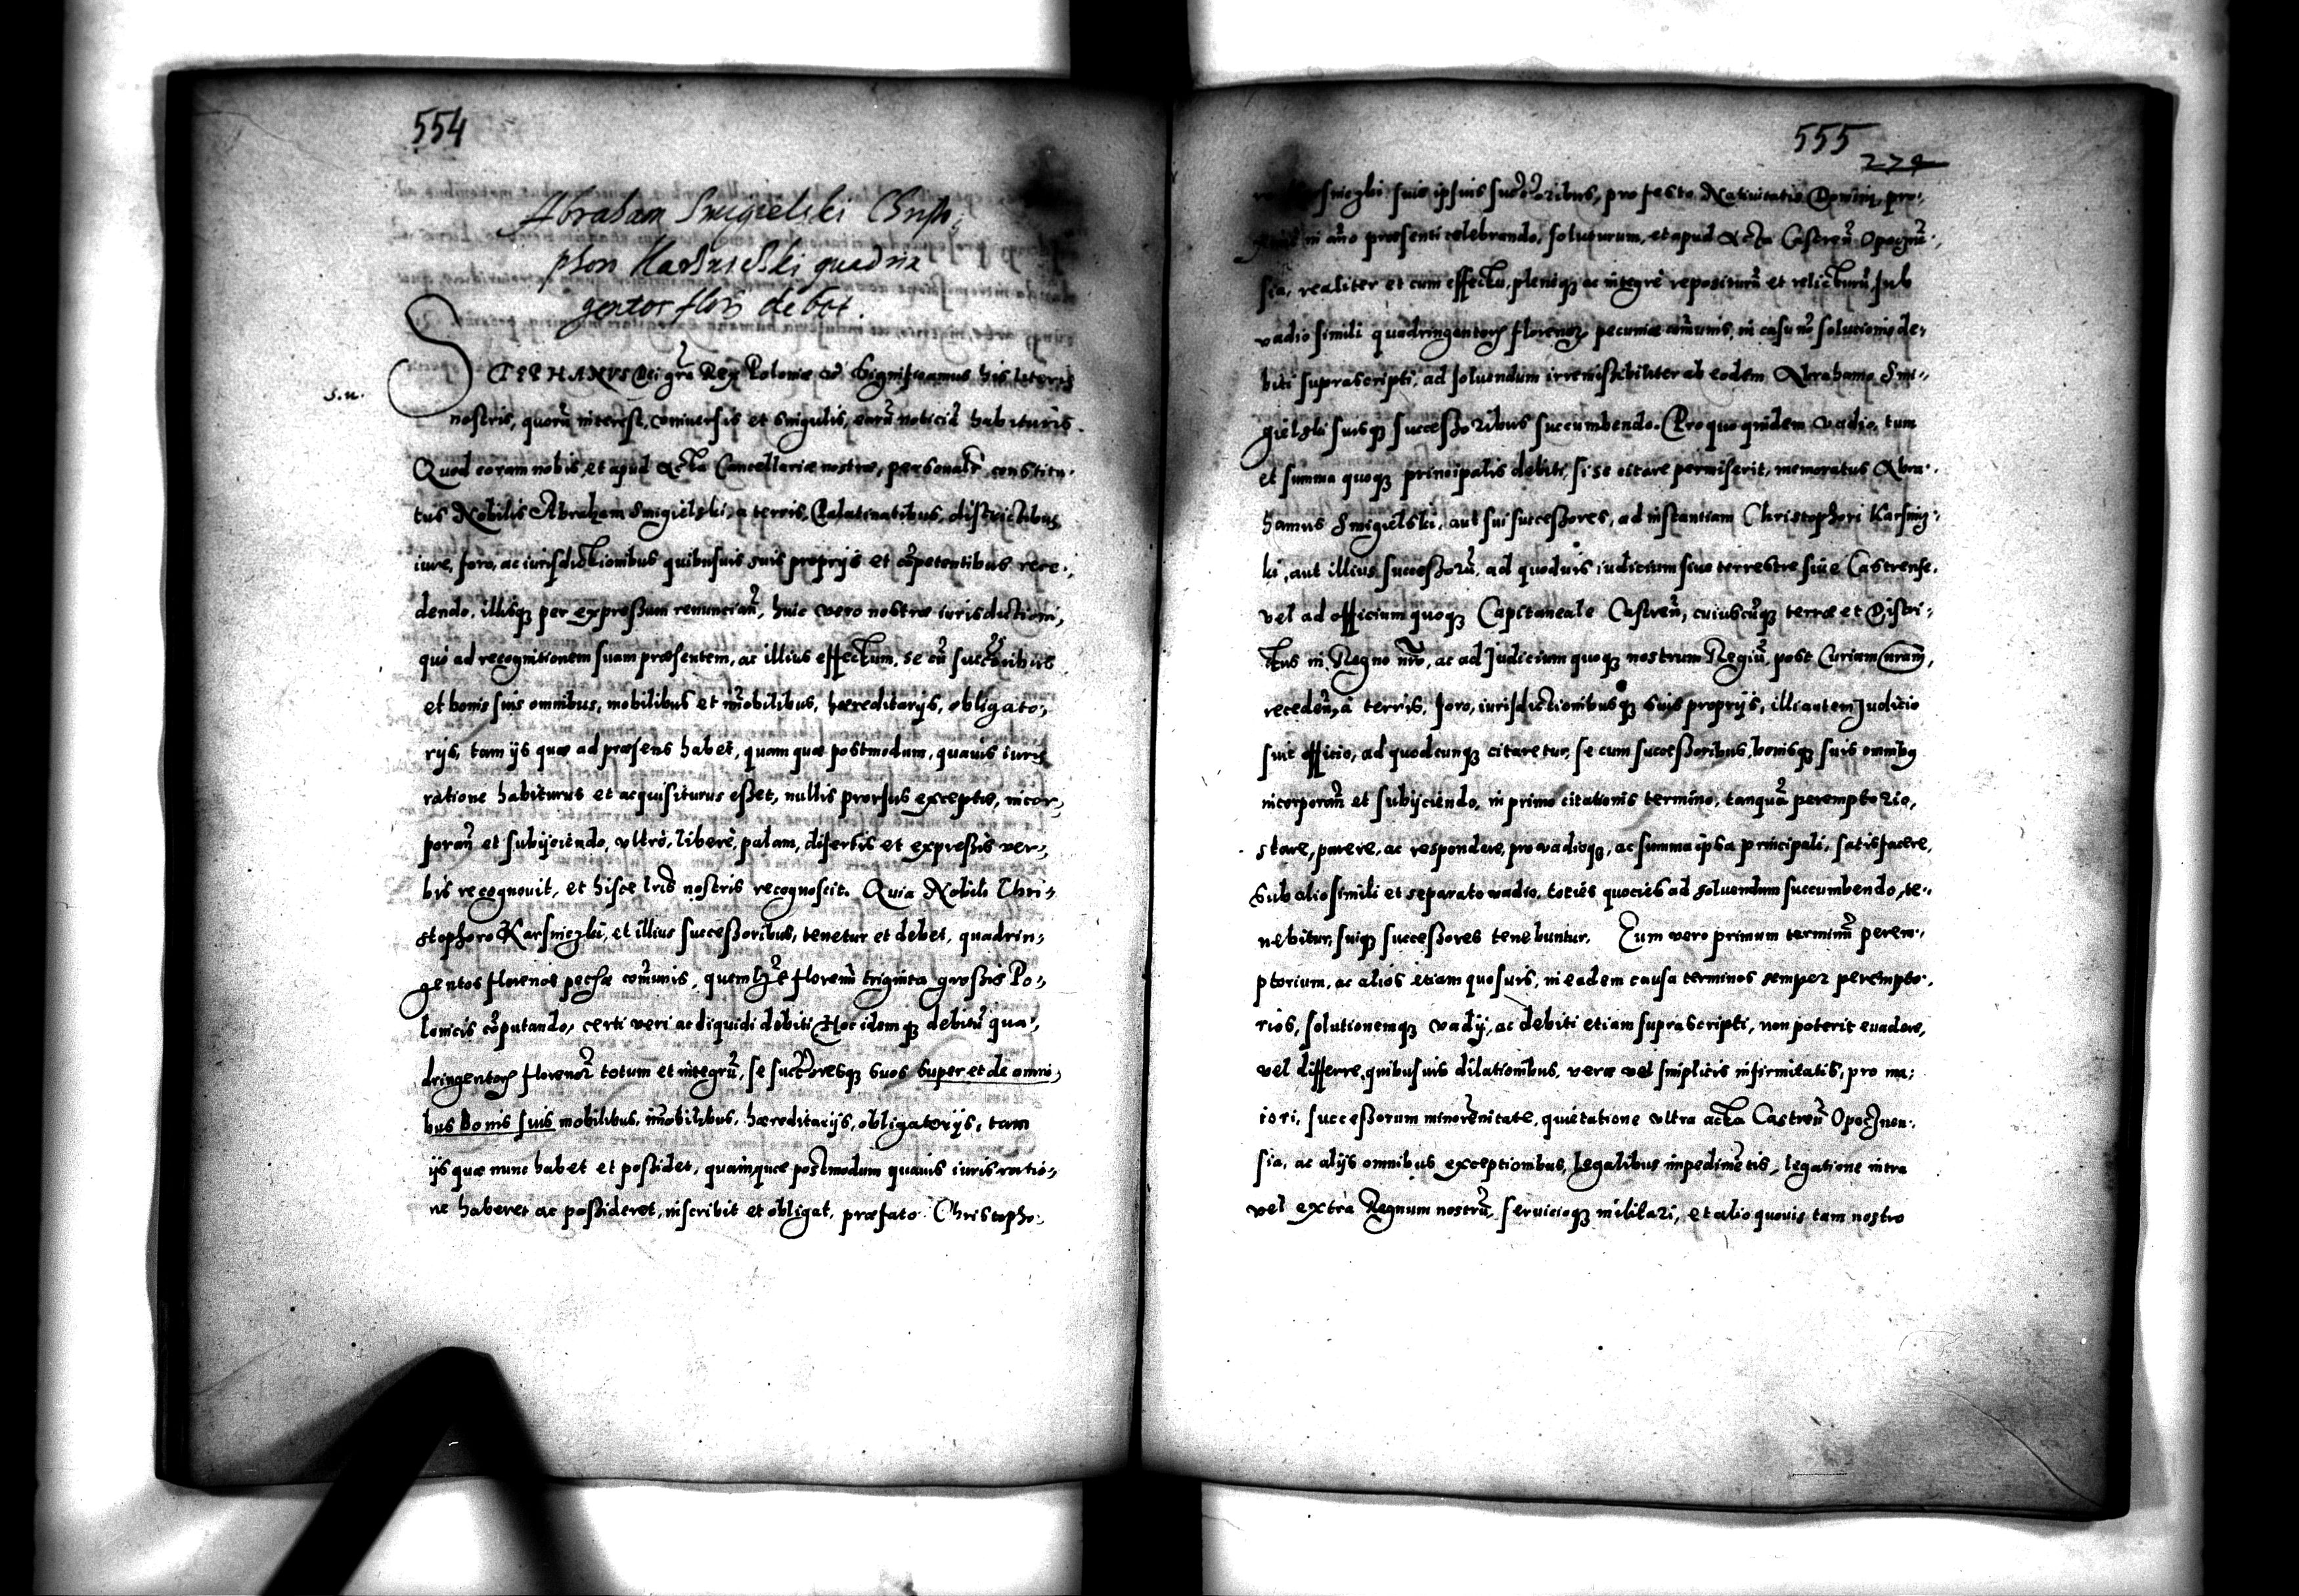 554
Abraham Smigielski Christo,
phoro Karsnieski quadrin
gentos flor debet.
STEPHANVS Dei grã Rex Poloniæ &c̃ Significamus his literis
s.n.
nostris, quorũ interest, vniuersis et singulis, earũ noticiã habituris.
Quod coram nobis, et apud Acta Cancellariæ nostræ, personalr̃ constitu,
tus Nobilis Abraham Smigielski, a terris, Palatinatibus, districtibus
iure, foro, ac iurisdictionibus quibusuis suis proprijs et cõpetentibus rece,
dendo, illisq3 per expressum renunciañ, huic vero nostræ iurisdictioni,
quo ad recognitionem suam præsentem, ac illius effectum, se cũ succõribus
et bonis suis omnibus, mobilibus et im̃obilibus, hæreditarijs, obligato,
rijs, tam ijs quæ ad præsens habet, quam quæ postmodum, quauis iuris
ratione habiturus et acquisiturus esset, nullis prorsus exceptis, incor,
porañ et subijciendo, vltrò, liberè, palam, disertis et expressis ver,
bis recognouit, et hisce lris nostris recognoscit. Quia Nobili Chri,
stophoro Karsniczki, et illius successoribus, tenetur et debet, quadrin,
gentos florenos pecñæ com̃unis, quemlꝫt florenũ triginta grossis Po,
lonicis cõputando, certi veri ac liquidi debiti Hoc idemq3 debitũ qua,
dringentorꝫ florenorꝫ totum et integrũ, se succ̃oresq3 suos super et de omni,
bus bonis suis mobilibus, im̃obilibus, hæreditarijs, obligatorijs, tam
ijs quæ nunc habet et possidet, quamquæ postmodum quauis iuris ratio,
ne haberet ac possideret, inscribit et obligat, præfato Christopho,
555
279
Karsniczki suis ipsius succ̃oribus, pro festo Natiuitatis Domini, pro,
in año præsenti celebrando, soluturum, et apud Acta Castreñ Opocznẽ,
sia, realiter et cum effectu, pleneq3 ac integrè repositurũ et relicturũ, sub
vadio simili quadringentorꝫ florenorꝫ pecuniæ com̃unis, in casu nõ solutionis de,
biti suprascripti, ad soluendum irremissibiliter ab eodem Abrahamo Smi,
gielski suisq3 successoribus succumbendo. Pro quo quidem vadio, tum
et summa quoq3 principalis debiti, si se citare permiserit, memoratus Abra,
hamus Smigielski, aut sui successores, ad instantiam Christophori Karsnicz,
ki, aut illius successorũ, ad quoduis iudicium siue terrestre siue Castrense,
vel ad officium quoq3 Capitaneale Castreñ, cuiuscũq3 terræ et Distri,
ctus in Regno nr̃o, ac ad Judicium quoq3 nostrum Regiũ, post Curiam nr̃am,
recedeñ, a terris, foro, iurisdictionibusq3 suis proprijs, illi autem Judicio
siue officio, ad quodcunq3 citaretur, se cum successoribus, bonisq3 suis omnibꝫ
incorporañ et subijciendo, in primo citationis termino, tanquã peremptorio,
stare, parere, ac respondere, pro vadioq3, ac summa ipsa principali, satisfacere,
sub alio simili et separato vadio, toties quoties ad soluendum succumbendo, te,
nebitur, suiq3 successores tenebuntur. Eum vero primum terminũ perem,
ptorium, ac alios etiam quosuis, in eadem causa terminos semper perempto,
rios, solutionemq3 vadij, ac debiti etiam suprascripti, non poterit euadere,
vel differre, quibusuis dilationibus, veræ vel simplicis infirmitatis, pro ma,
iori, successorum minorẽnitate, quietatione vltra acta Castreñ Opocznen,
sia, ac alijs omnibus exceptionibus, legalibus impedimẽtis, legatione intra
vel extra Regnum nostrũ, seruicioq3 militari, et alio quouis tam nostro